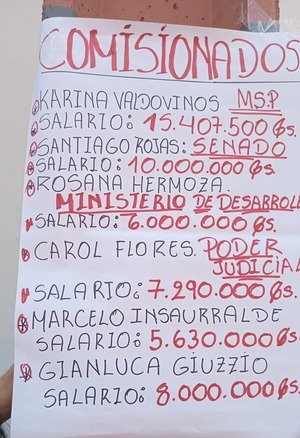 COMISIONADOS
KARINA VALDOVINOS M.S.P
SALARIO: 15.407.500 Gs.
SANTIAGO ROJAS: SENADO
SALARIO: 10.000.000 Gs.
ROSANA HERMOZA.
MINISTERIO DE DESARROLL
SALARIO: 6.000.000 Gs.
CAROL FLORES. PODER
JUDICIAL
SALARIO: 7.290.000 Gs.
MARCELO INSAURRALDE
SALARIO: 5.630.000 Gs.
GIANLUCA GIUZZIO
SALARIO: 8.000.000 Gs.